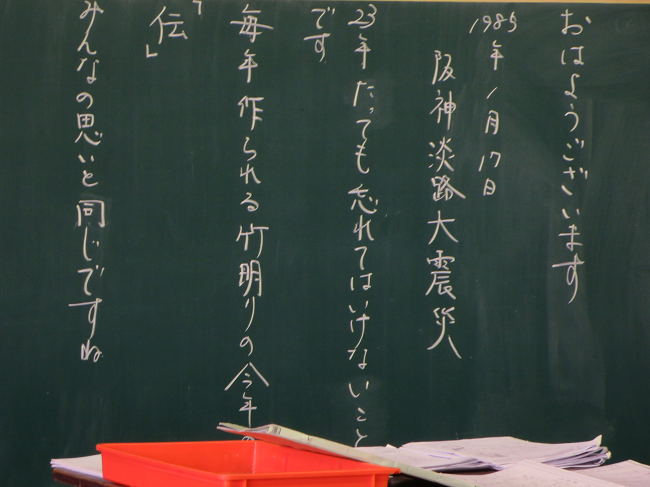 おはようございます
1985年1月17日
阪神淡路大震災
23年たっても忘れてはいけないこと
です
毎年作られる竹明りの今年の
「伝」
みんなの思いと同じですね